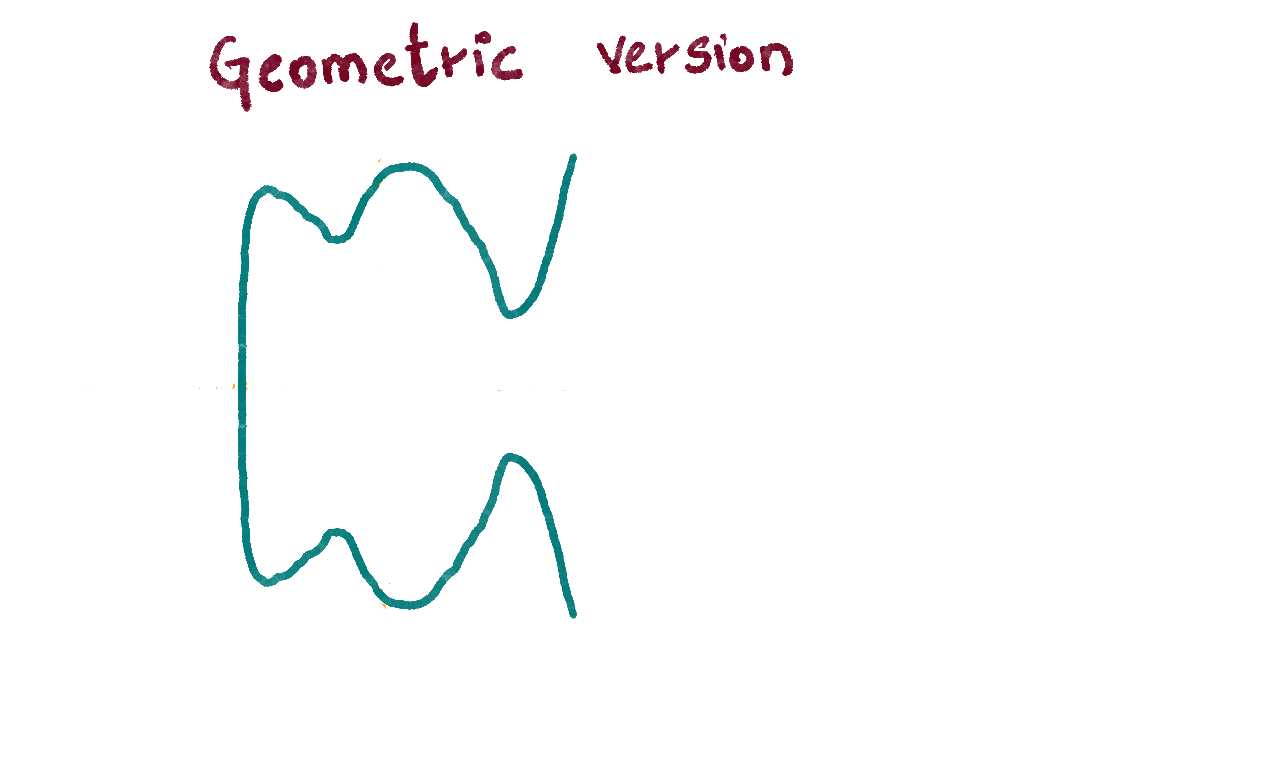 Geometric version